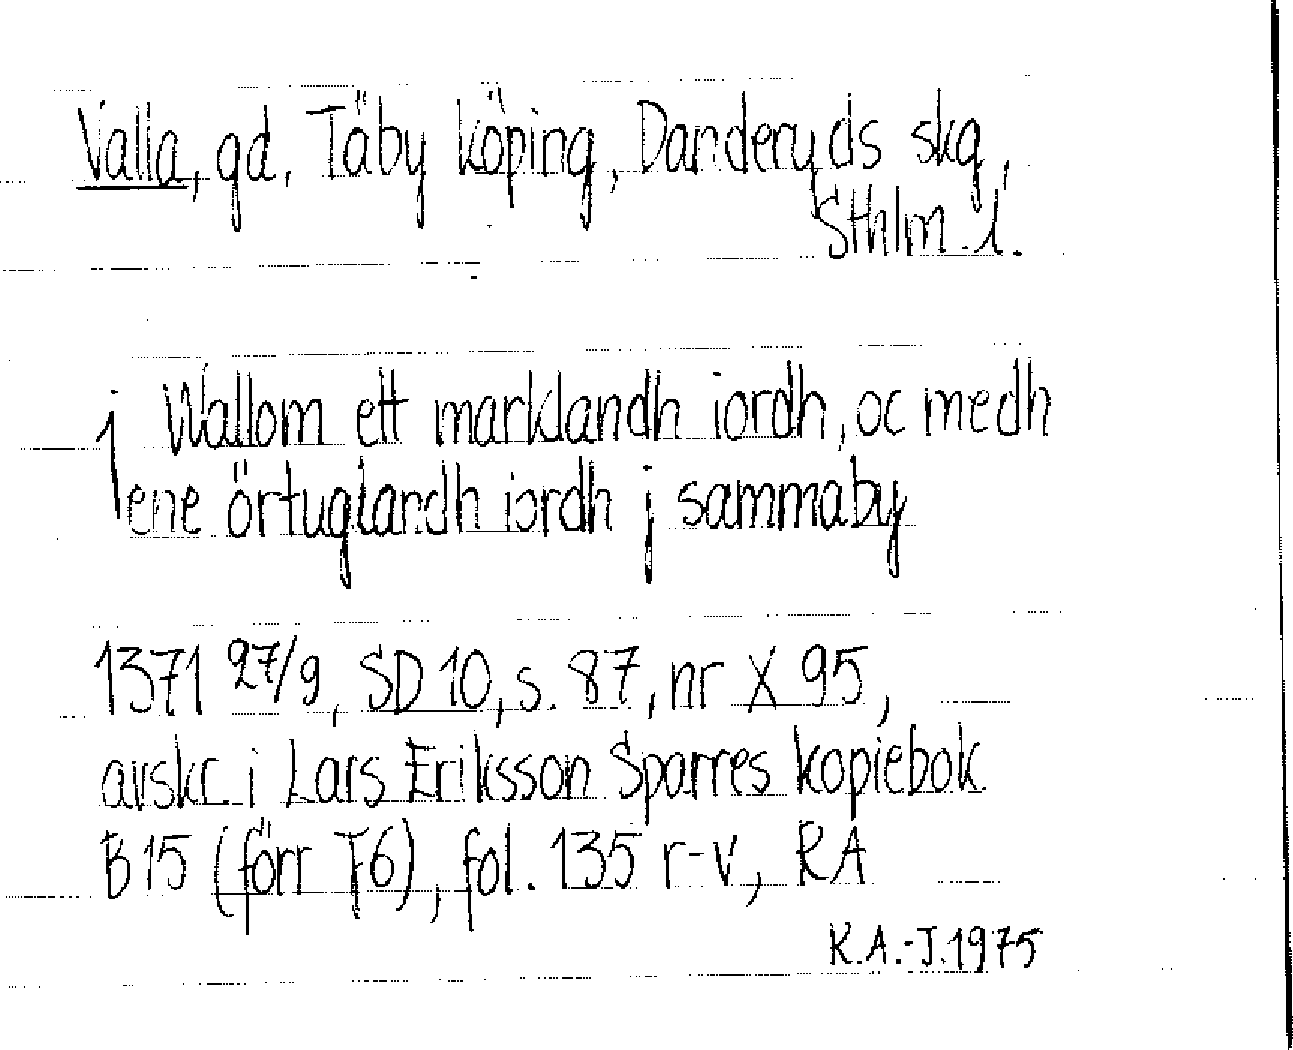 Valla, gd, Täby köping, Danderyds skg,
Sthlm l.
j Wallom ett marklandh iordh, oc medh
ene örtuglandh iordh j sammaby
1371 27/9, SD 10, s. 87, nr X 95,
avskr i Lars Eriksson Sparres kopiebok
B 15 (förr F6), fol. 135 r-v, RA
K.A.-J. 1975